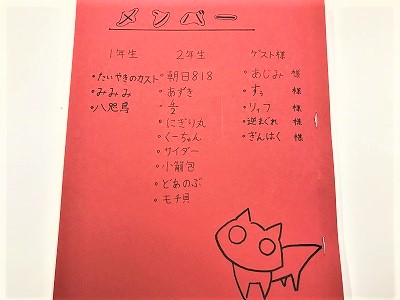 メンバー
1年生
・たいやきのカスト
・みみみ
・八咫烏
2年生
・朝日818
・あずき
・にぎり丸
・くーちゃん
・サイダー
・小籠包
・どあのぶ
・モチ貝
ゲスト様
・あじみ 様
・す。 様
・リャフ 様
・逆まぐれ 様
・ぎんはく 様